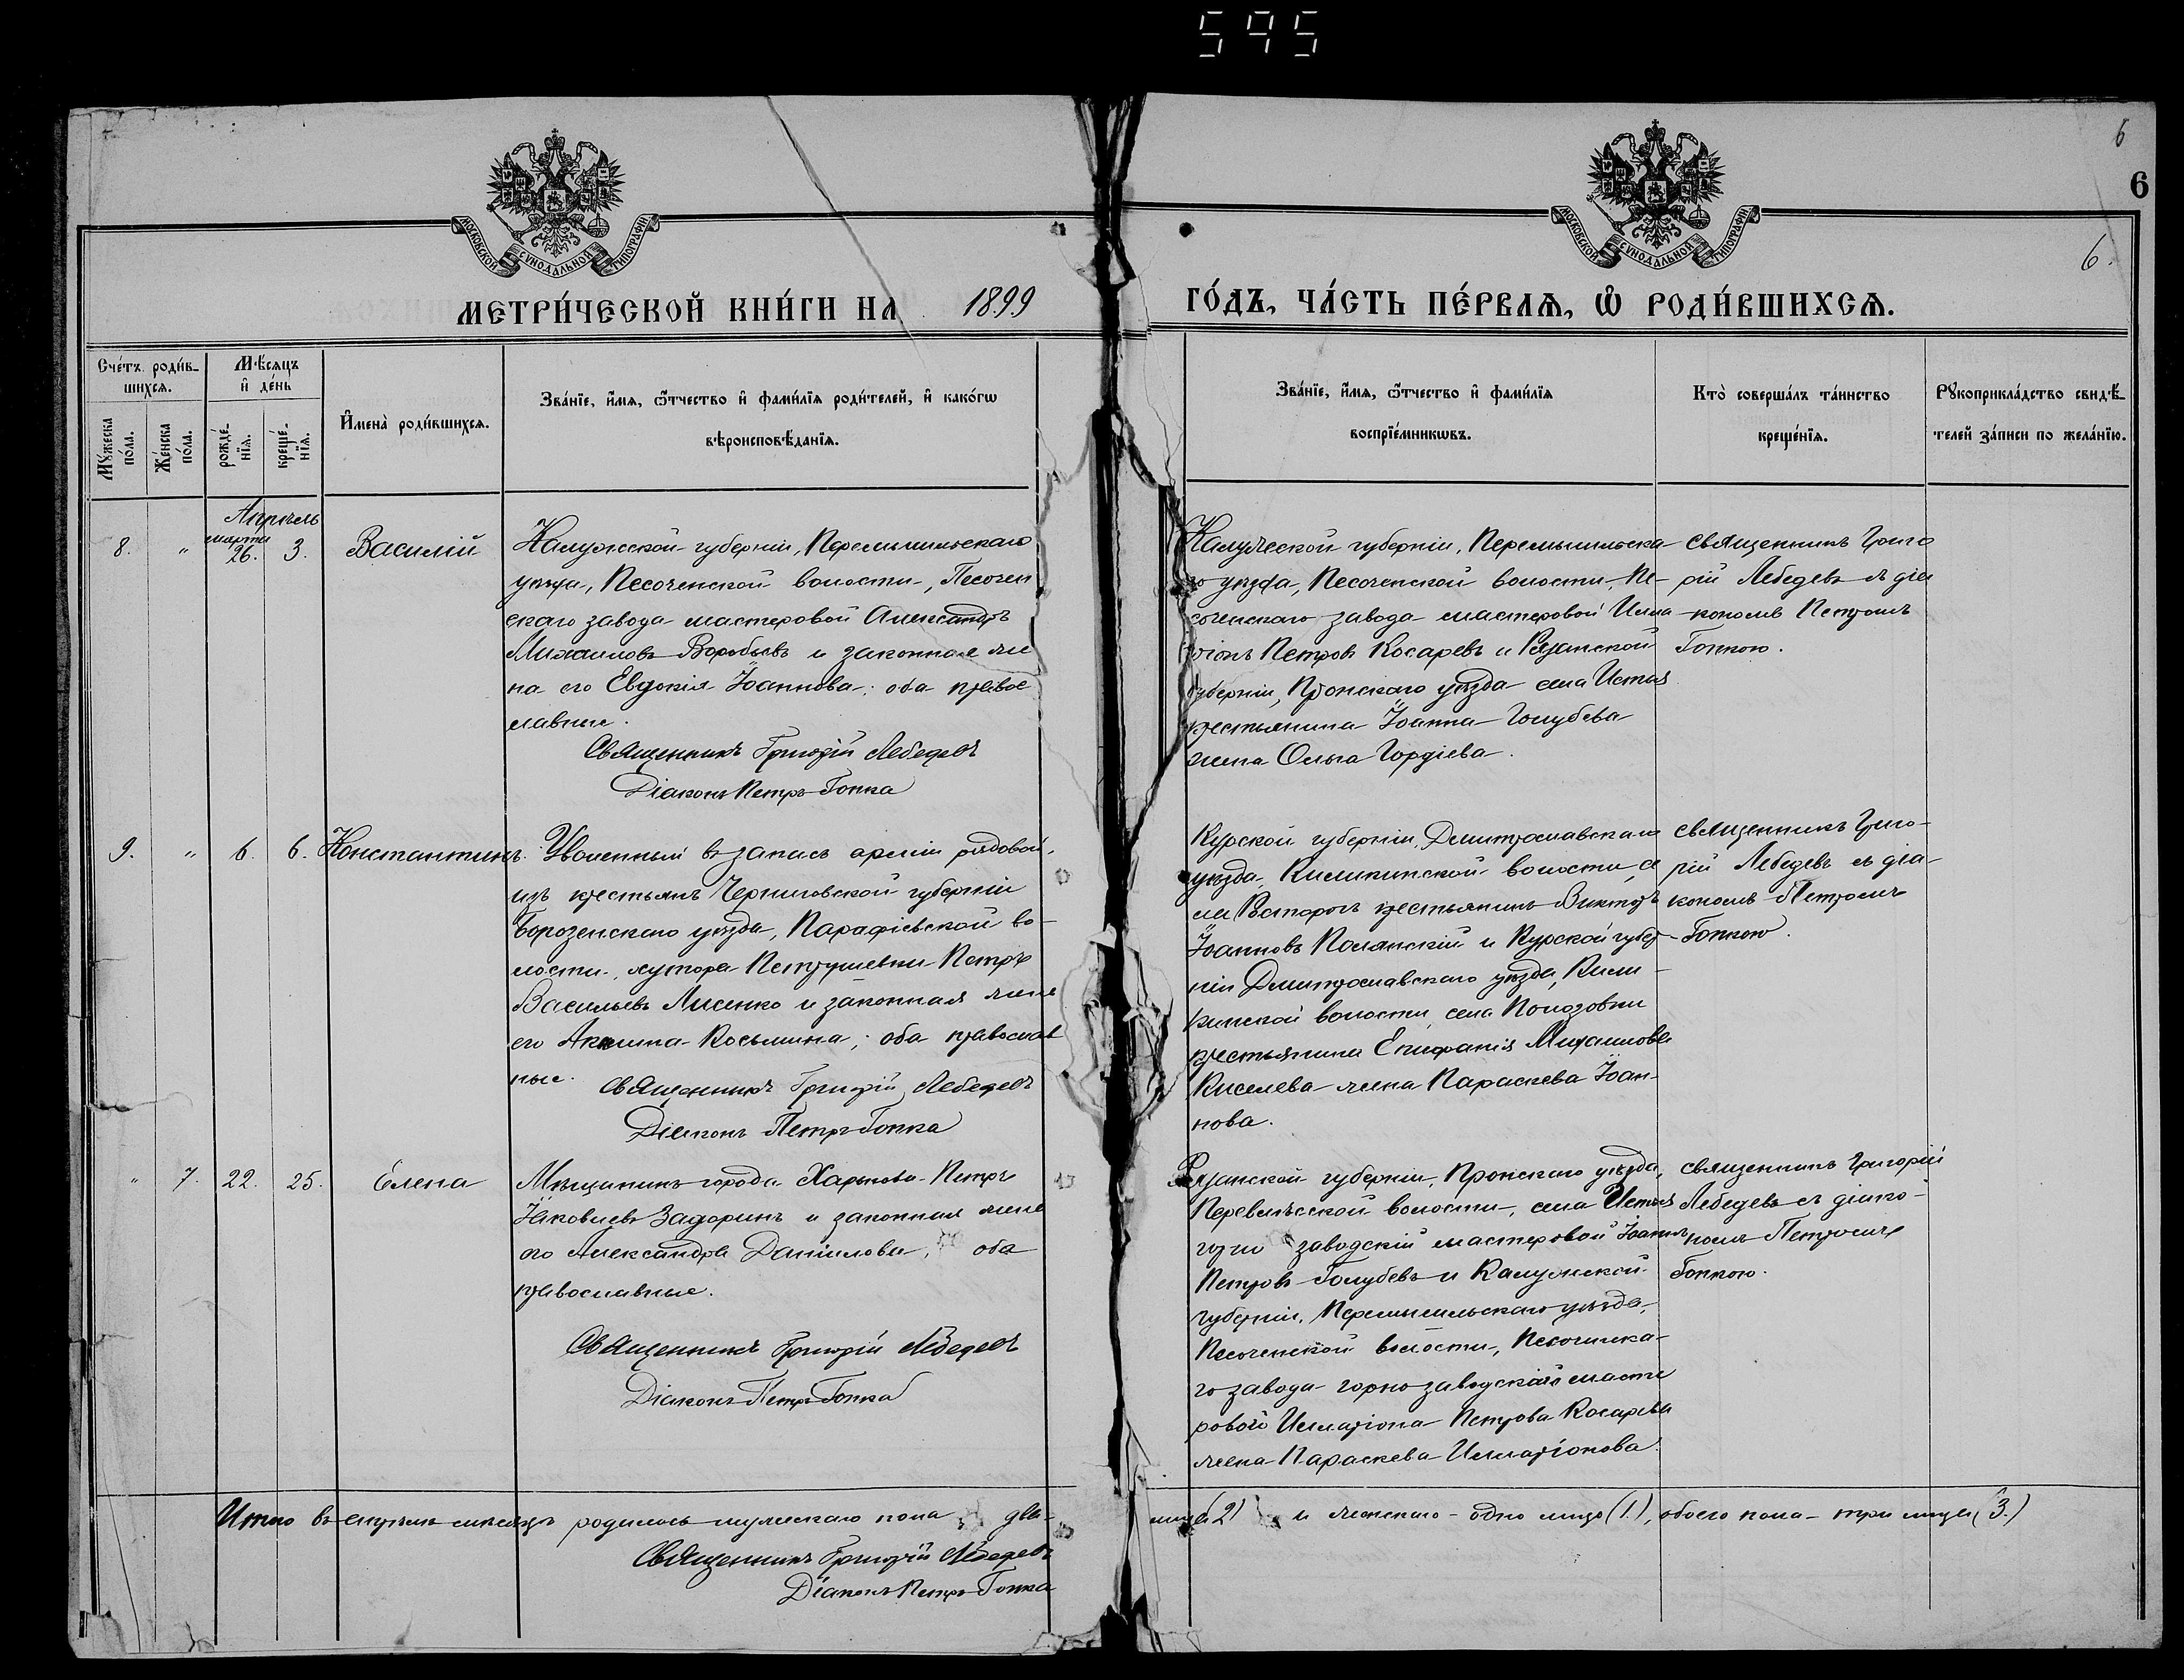 595
6
6
6.
МОСКОВСКОЙ СѴНОДАЛЬНОЙ ТИПОГРАФІИ
МОСКОВСКОЙ СѴНОДАЛЬНОЙ ТИПОГРАФІИ
МЕТРИ́ЧЕСКОЙ КНИ́ГИ НА 1899
ГО́ДЪ, ЧА́СТЬ ПЕ́РВАѦ, Ѡ РОДИ́ВШИХСѦ.
Сче́тъ роди́в-
шихсѧ.
Мꙋ́жеска
по́ла.
Же́нска
по́ла.
Мѣ́сѧцъ
и҆ де́нь
рожде́-
нїѧ.
креще́-
нїѧ.
И҆мена̀ роди́вшихсѧ.
Зва́нїе, и҆́мѧ, ѻ҆́тчество и҆ фами́лїѧ роди́телей, и҆ како́гѡ
вѣроисповѣ́данїѧ.
Зва́нїе, и҆́мѧ, ѻ҆́тчество и҆ фами́лїѧ
воспрїе́мникѡвъ.
Кто̀ соверша́лъ та́инство
креще́нїѧ.
Рꙋкоприкла́дство свидѣ́-
телей за́писи по жела́нїю.
Апрѣль
8. " марта 26. 3. Василій
Калужской губерніи, Перемышльскаго
уѣзда, Песоченской волости, Песочен
скаго завода мастеровой Александръ
Михаиловъ Воробьевъ и законная же
на его Евдокія Іоаннова; оба правос
лавные.
Священникъ Григорій Лебедевъ
Діаконъ Петръ Гопка
Калужской губерніи, Перемышльска
го уѣзда, Песоченской волости, Пе-
соченскаго завода мастеровой Илла
ріонъ Петровъ Косаревъ и Рязанской
губерніи, Пронскаго уѣзда села Истья
крестьянина Іоанна Голубева
жена Ольга Гордіева.
Священникъ Григо
рій Лебедевъ съ діа
кономъ Петромъ
Гопкою.
9. " 6. 6. Константинъ.
Уволенный въ запасъ арміи рядовой,
изъ крестьянъ Черниговской губерніи
Борозенскаго уѣзда, Парафіевской во-
лости, хутора Петрушевки Петръ
Васильевъ Лисенко и законная жена
его Акилина Косьмина; оба православ
ные.
Священникъ Григорій Лебедевъ
Діаконъ Петръ Гопка
Курской губерніи, Дмитрославскаго
уѣзда, Киликинской волости, се
ла крестьянинъ Викторъ
Іоанновъ Полянскій и Курской губер-
ніи Дмитрославскаго уѣзда, Кили-
кинской волости, села Полозовки
крестьянина Епифанія Михаилова
Киселева жена Параскева Іоан-
нова.
Священникъ Григо-
рій Лебедевъ съ діа-
кономъ Петромъ
Гопкою.
" 7. 22. 25. Елена
Мѣщанинъ города Харькова Петръ
Іаковлевъ Задоринъ и законная жена
его Александра Даніилова, оба
православные.
Священникъ Григорій Лебедевъ
Діаконъ Петръ Гопка
Рязанской губерніи, Пронскаго уѣзда,
Перевлѣсской волости, села Истья
горно заводскій мастеровой Іоаннъ
Петровъ Голубевъ и Калужской
губерніи, Перемышльскаго уѣзда,
Песоченской волости, Песоченска-
го завода горнозаводскаго масте
роваго Илларіона Петрова Косарева
жена Параскева Илларіонова.
Священникъ Григорій
Лебедевъ съ діако-
номъ Петромъ
Гопкою.
Итого въ апрѣлѣ мѣсяцѣ родилось мужескаго пола два лица (2) и женскаго - одно лицо (1.), обоего пола - три лица (3.)
Священникъ Григорій Лебедевъ
Діаконъ Петръ Гопка